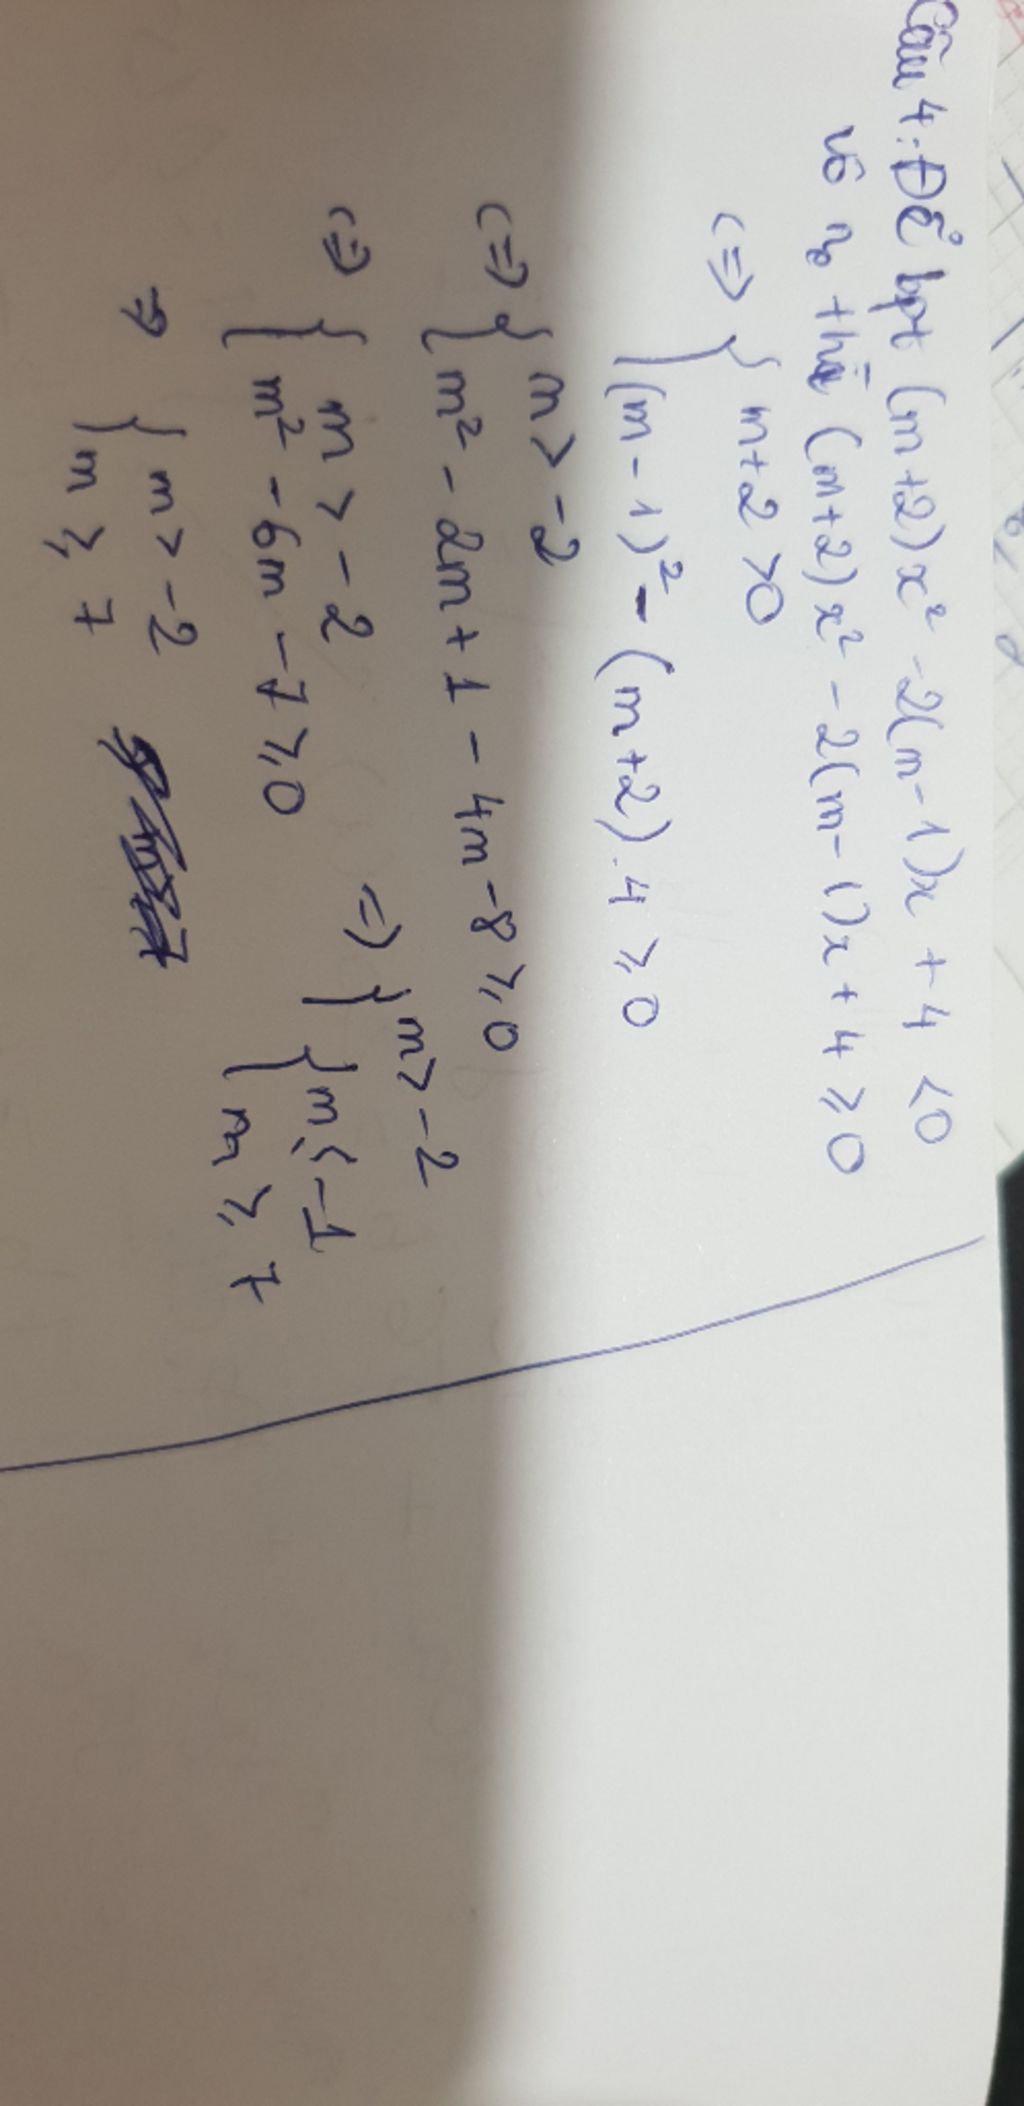 Câu 4: Để bpt (m+2)x² -2(m-1)x + 4 < 0
vô no thì (m+2)x² - 2(m-1)x + 4 ≥ 0
<=> { m+2 > 0
(m-1)² - (m+2).4 ≥ 0
<=> { m > -2
m² - 2m + 1 - 4m - 8 ≥ 0
<=> { m > -2
m² - 6m - 7 ≥ 0
=> { m > -2
{ m ≤ -1
m ≥ 7
=> { m > -2
m ≥ 7